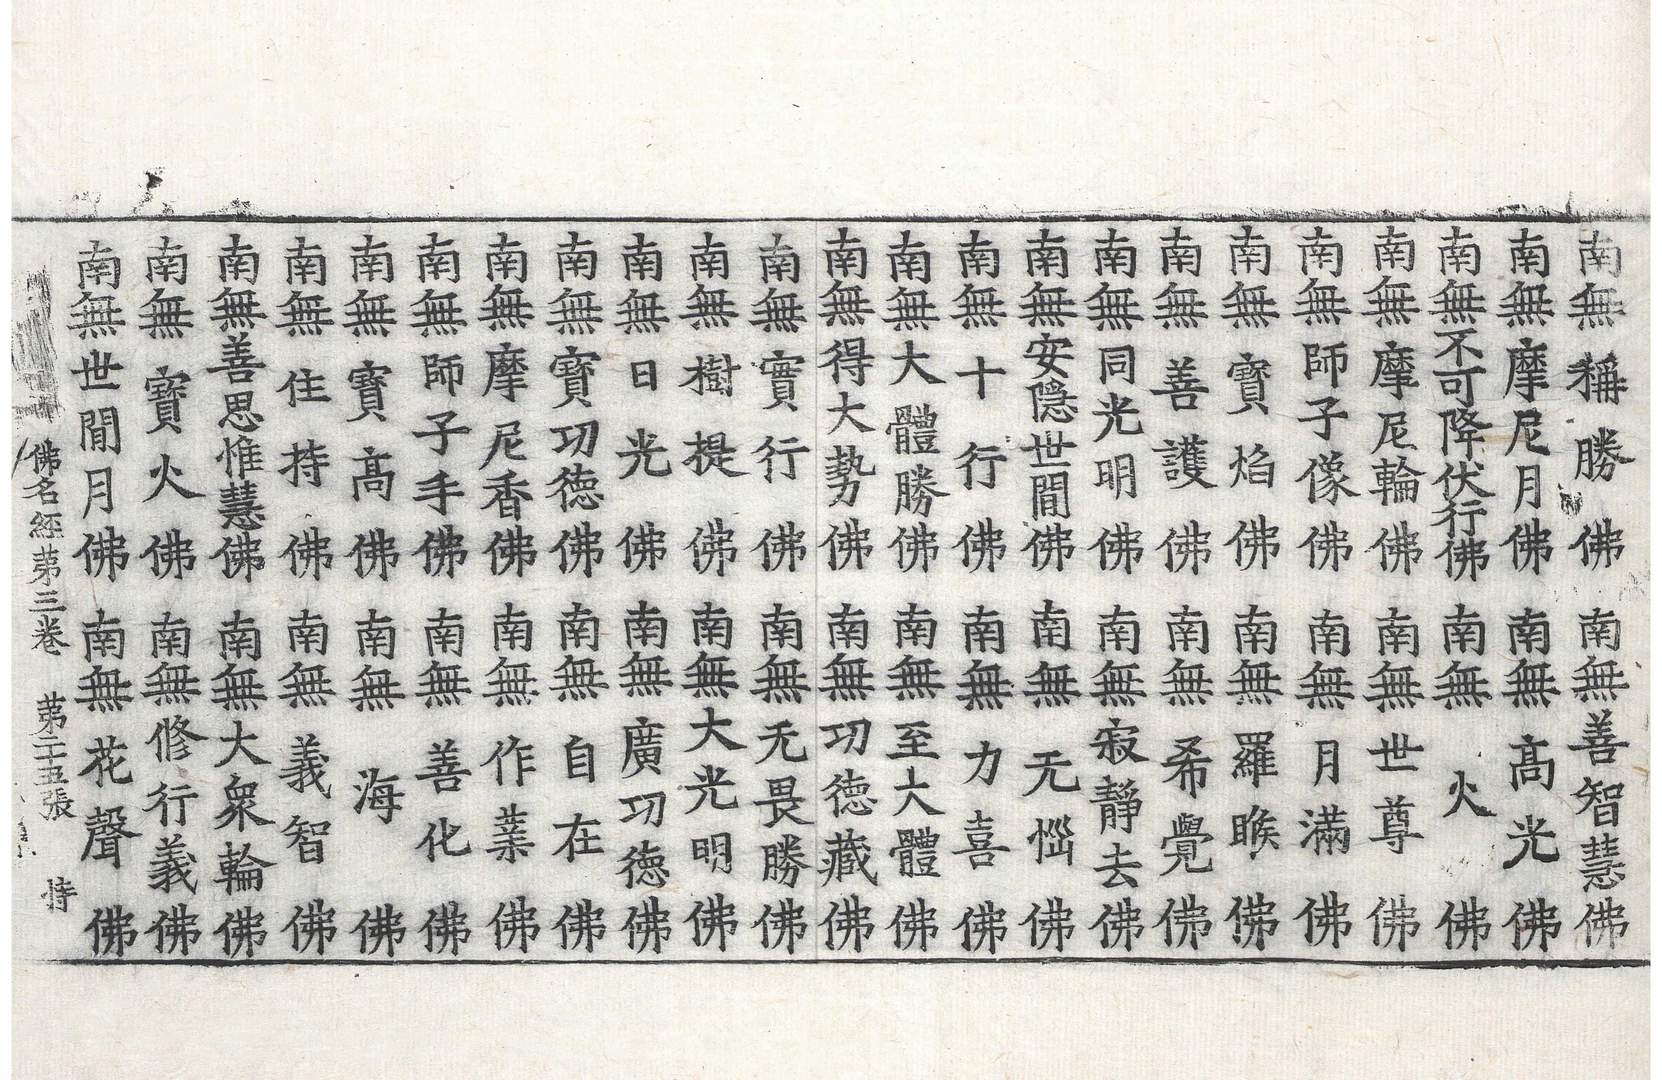 南無稱勝佛 南無善智慧佛
南無摩尼月佛 南無髙光佛
南無不可降伏行佛 南無火佛
南無摩尼輪佛 南無世尊佛
南無師子像佛 南無月滿佛
南無寶焰佛 南無羅睺佛
南無善護佛 南無希覺佛
南無同光明佛 南無寂靜去佛
南無安隱世間佛 南無无惱佛
南無十行佛 南無力喜佛
南無大體勝佛 南無至大體佛
南無得大勢佛 南無功德藏佛
南無實行佛 南無无畏勝佛
南無樹提佛 南無大光明佛
南無日光佛 南無廣功德佛
南無寶功德佛 南無自在佛
南無摩尼香佛 南無作業佛
南無師子手佛 南無善化佛
南無寶髙佛 南無海佛
南無住持佛 南無義智佛
南無善思惟慧佛 南無大衆輪佛
南無寶火佛 南無修行義佛
南無世間月佛 南無花聲佛
佛名經苐三卷 苐二十五張 恃